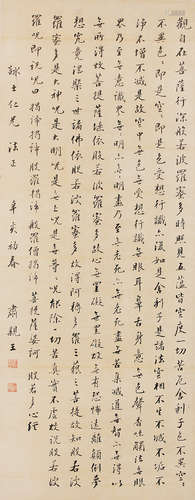 觀自在菩薩行深般若波羅蜜多時照見五蘊皆空度一切苦厄舍利子色不異空空
不異色色即是空空即是色受想行識亦復如是舍利子是諸法空相不生不滅不垢不
淨不增不減是故空中無色無受想行識無眼耳鼻舌身意無色聲香味觸法無眼
界乃至無意識界無無明亦無無明盡乃至無老死亦無老死盡無苦集滅道無智亦無得以
無所得故菩提薩埵依般若波羅蜜多故心無罣礙無罣礙故無有恐怖遠離顛倒夢
想究竟涅槃三世諸佛依般若波羅蜜多故得阿耨多羅三藐三菩提故知般若波
羅蜜多是大神咒是大明咒是無上咒是無等等咒能除一切苦真實不虛故說般若波
羅蜜多咒即說咒曰揭諦揭諦波羅揭諦波羅僧揭諦菩提薩婆訶 般若多心經
士仁兄 法正 辛亥初春 肅親王